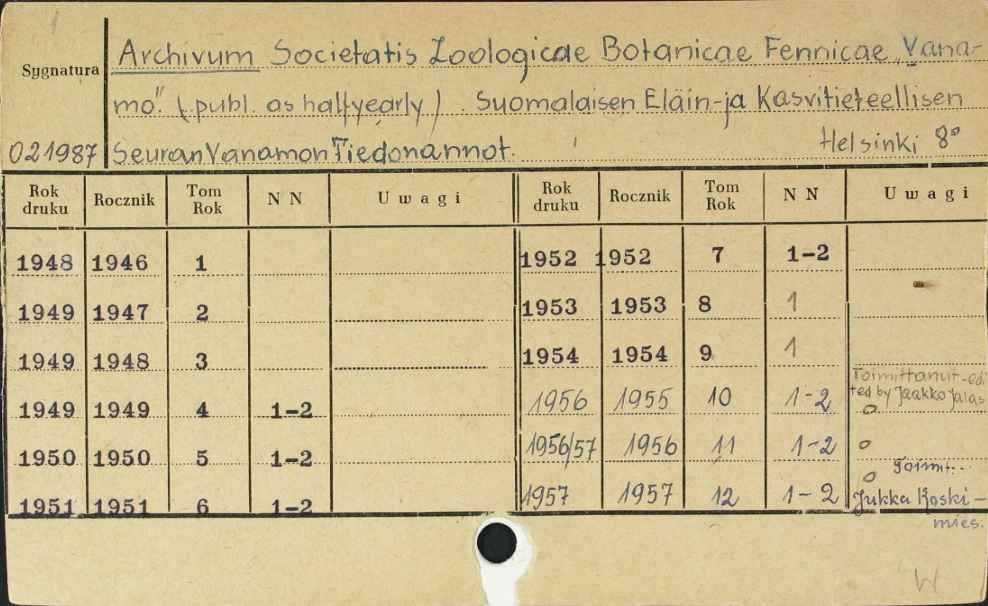 Sygnatura
Archivum Societatis Zoologicae Botanicae Fennicae „Vana-
mo". (publ. as halfyearly). Suomalaisen Eläin-ja Kasvitieteellisen
021987 Seuran Vanamon Tiedonannot. Helsinki 8°
Rok druku Rocznik Tom Rok NN Uwagi Rok druku Rocznik Tom Rok NN Uwagi
1948 1946 1 1952 1952 7 1-2
1949 1947 2 1953 1953 8 1
1949 1948 3 1954 1954 9 1
Toimittanut-edi
ted by Jaakko Jalas
1949 1949 4 1-2 1956 1955 10 1-2
1950 1950 5 1-2 1956/57 1956 11 1-2
Toimi...
1951 1951 6 1-2 1957 1957 12 1-2 Jukka Koski-
mies.
W